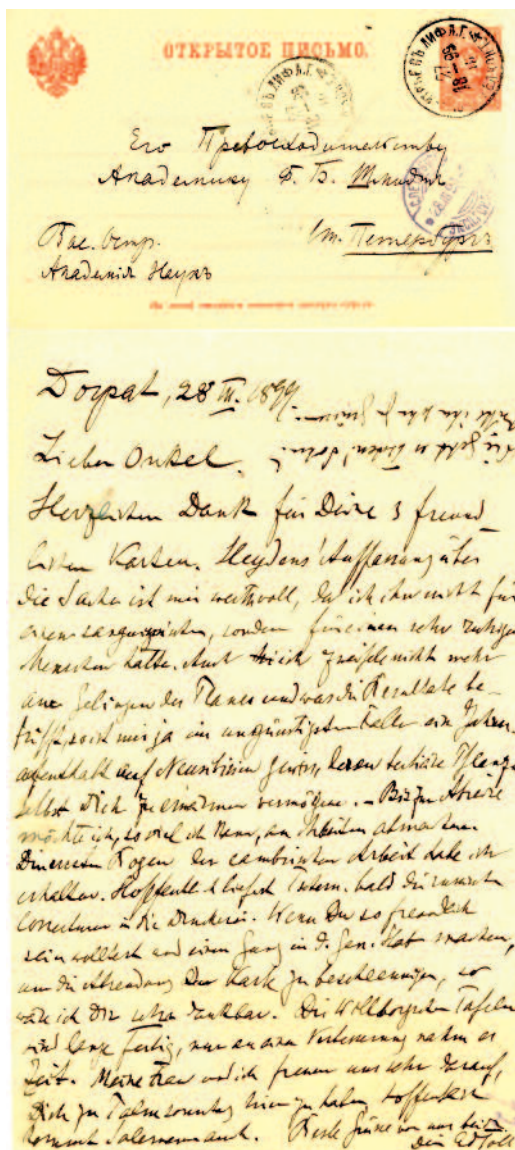 ОТКРЫТОЕ ПИСЬМО.
Его Превосходительству
Академику Ф. Б. Шмидт
Вас. Остр.
Ст. Петербургъ
Академія Наукъ
Dorpat, 28 III. 1899
Lieber Onkel.
Herzlichen Dank für Deine 3 freund
lichen Karten. Heydens Auffassung über
die Sache ist mir werthvoll, da ich ihn nicht für
einen sanguinischen, sondern für einen sehr ruhigen
Menschen halte. Auch ich zweifle nicht mehr
am Gelingen des Planes und was die Resultate be-
trifft, so ist mir ja im ungünstigsten Falle ein Jahres-
aufenthalt auf Neusibirien gewiss, deren tertiäre
selbst Dich zu vermögen. – Bis zur Abreise
möchte ich, so viel ich kann, an abmachen.
Den ersten Bogen der cambrischen Arbeit habe ich
erhalten. Hoffentlich liefert bald die
Correcturen in die Druckerei. Wenn Du so freundlich
sein wolltest und einen Gang in d. Gen. Stab machen,
um die Absendung der Karte zu beschleunigen, so
wäre ich Dir sehr dankbar. Die Tafeln
sind lange fertig, nur an einer Verbesserung nahm es
Zeit. Meine Frau und ich freuen uns sehr darauf,
Dich zu Palmsonntag hier zu haben, hoffentlich
kommt auch. Beste Grüsse von uns beiden
Dein Ed Toll